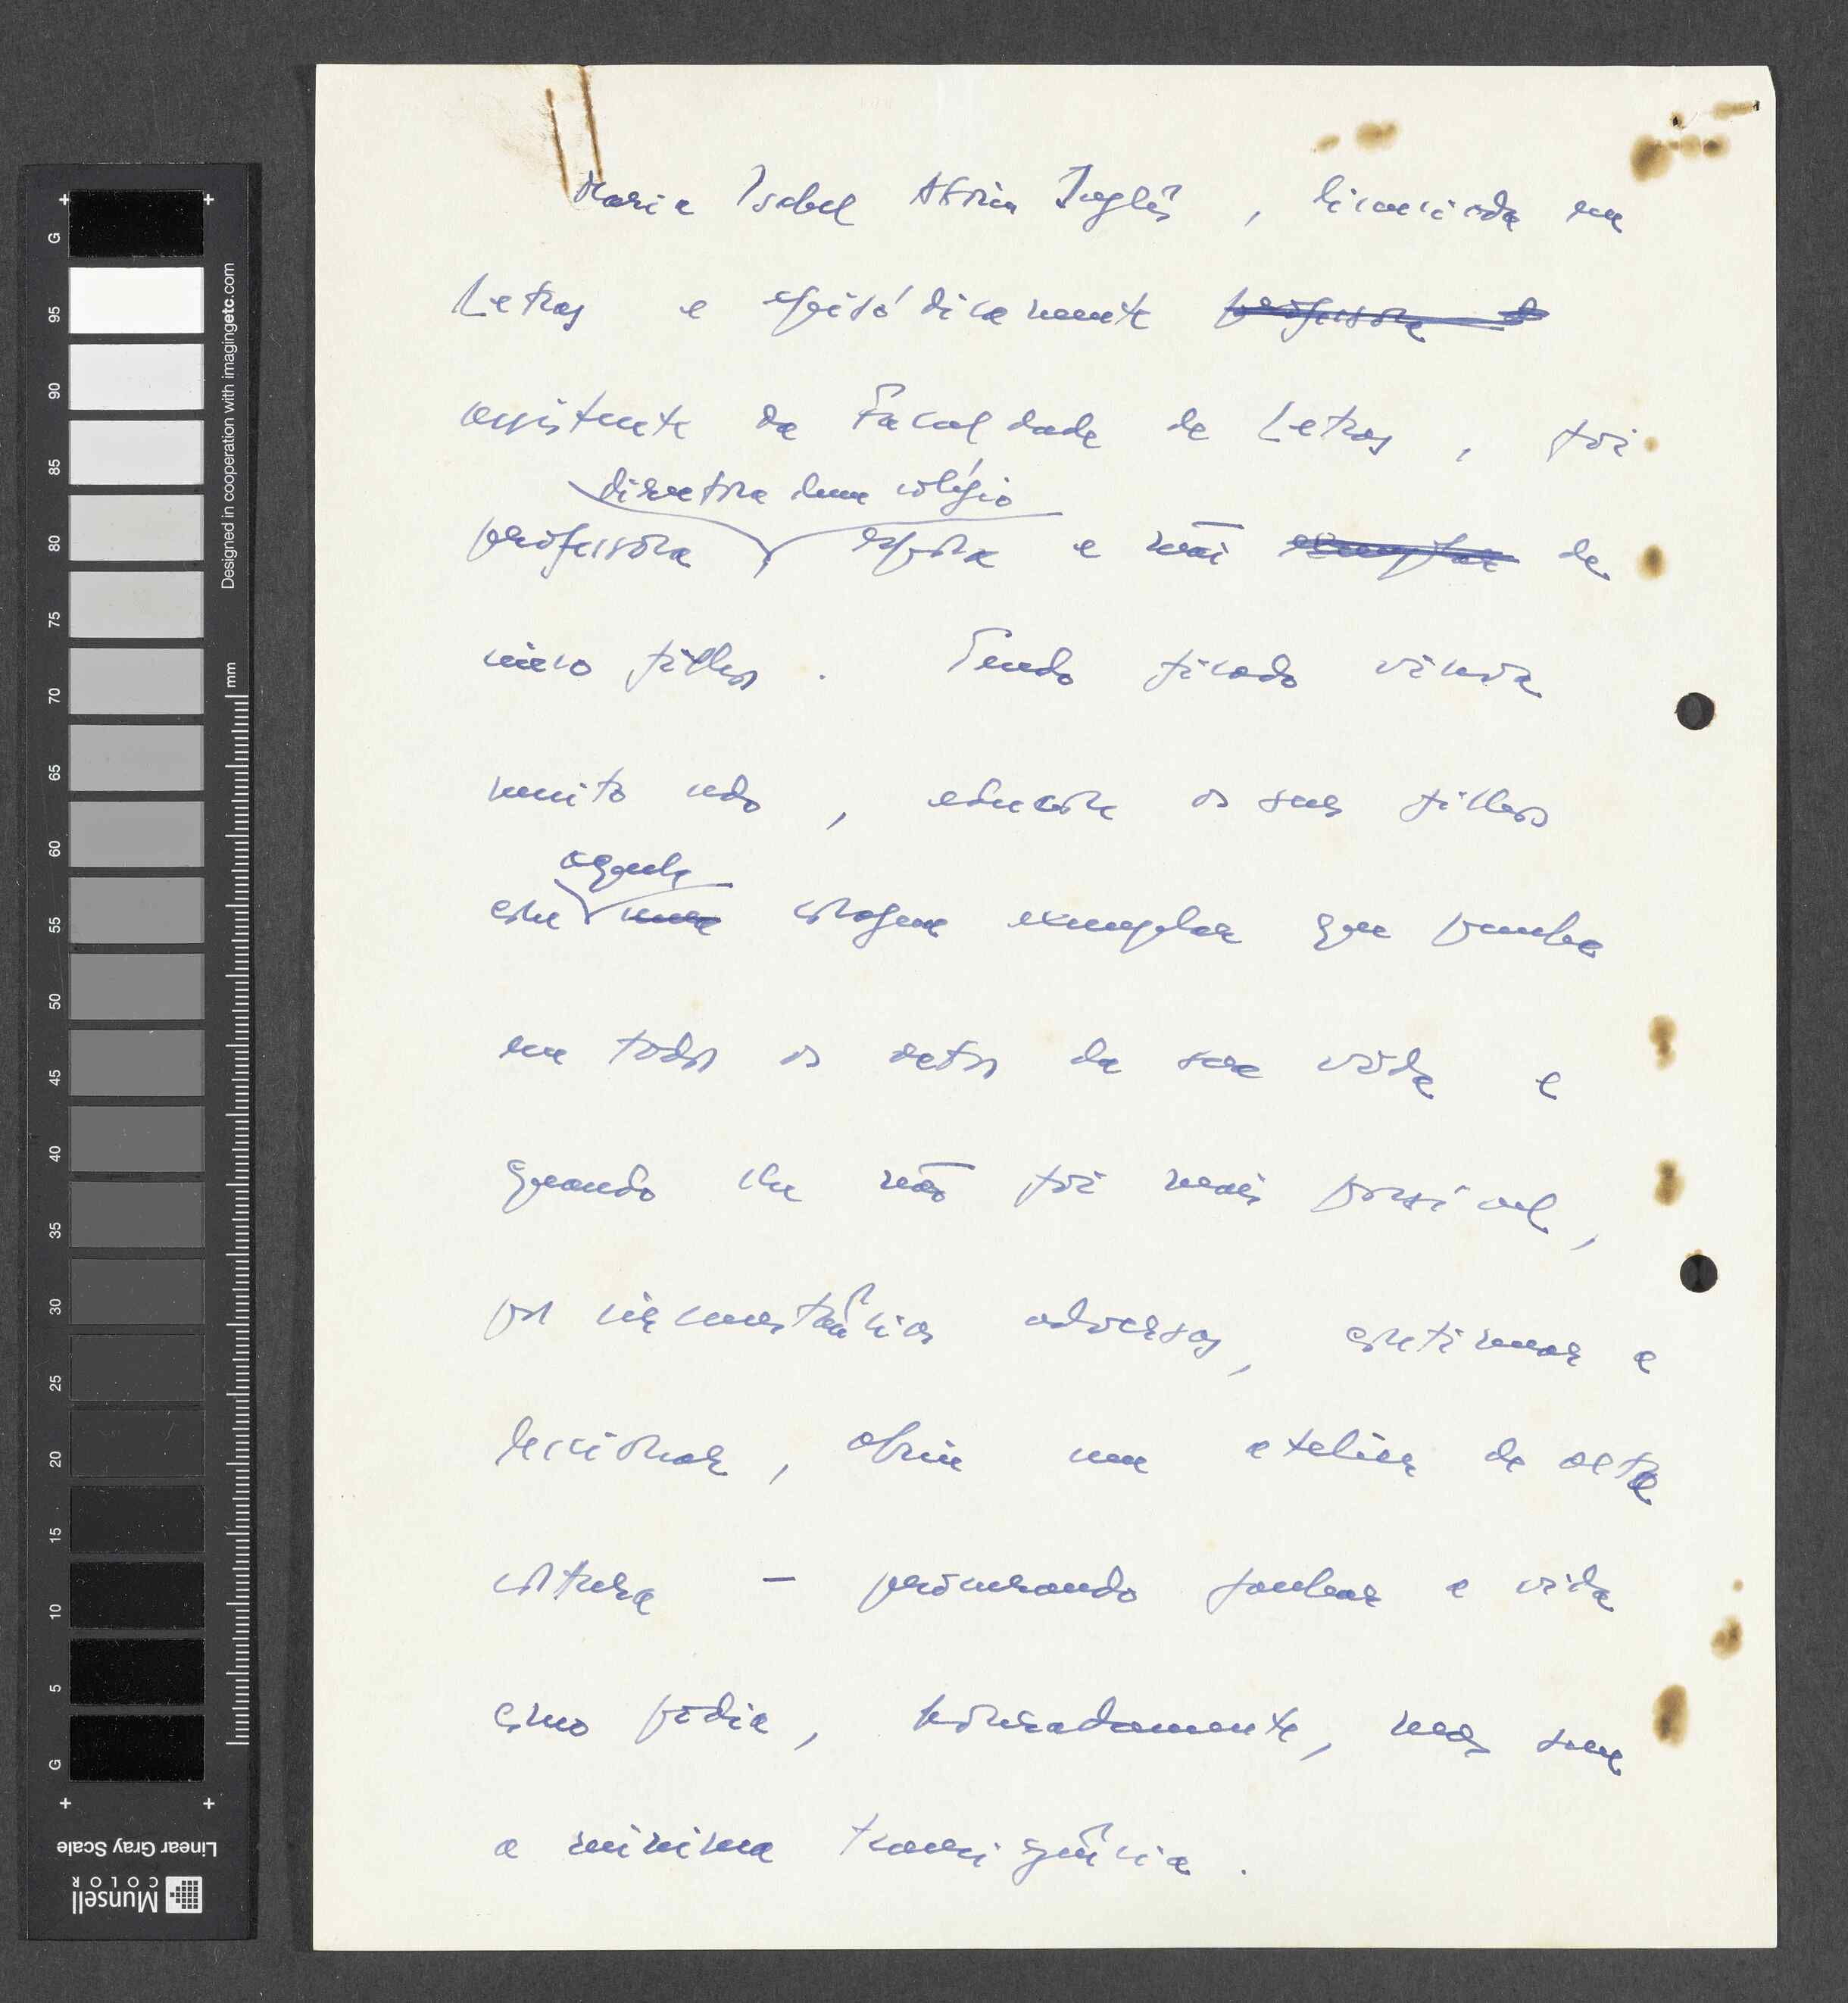 Maria Isabel Aboim Inglês, licenciada em
Letras e episódicamente professora d
assistente da Faculdade de Letras, foi
directora dum colégio
professora esposa e mãi exemplar de
cinco filhos. Tendo ficado viúva
muito cedo, educou os seus filhos
aquela
com uma coragem exemplar que punha
em todos os actos da sua vida e
quando lhe não foi mais possível,
por circunstâncias adversas, continuar a
leccionar, abriu um atelier de alta
costura — procurando ganhar a vida
como podia, honradamente, mas sem
a mínima transigência.
Designed in cooperation with imagingetc.com
mm
G 95 90 85 80 75 70 65 60 55 50 45 40 35 30 25 20 15 10 5 G
Linear Gray Scale
Munsell
COLOR